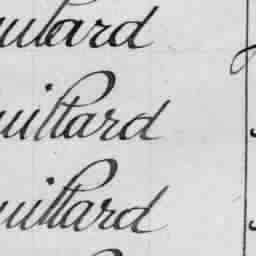 ulard
uillard
uillard